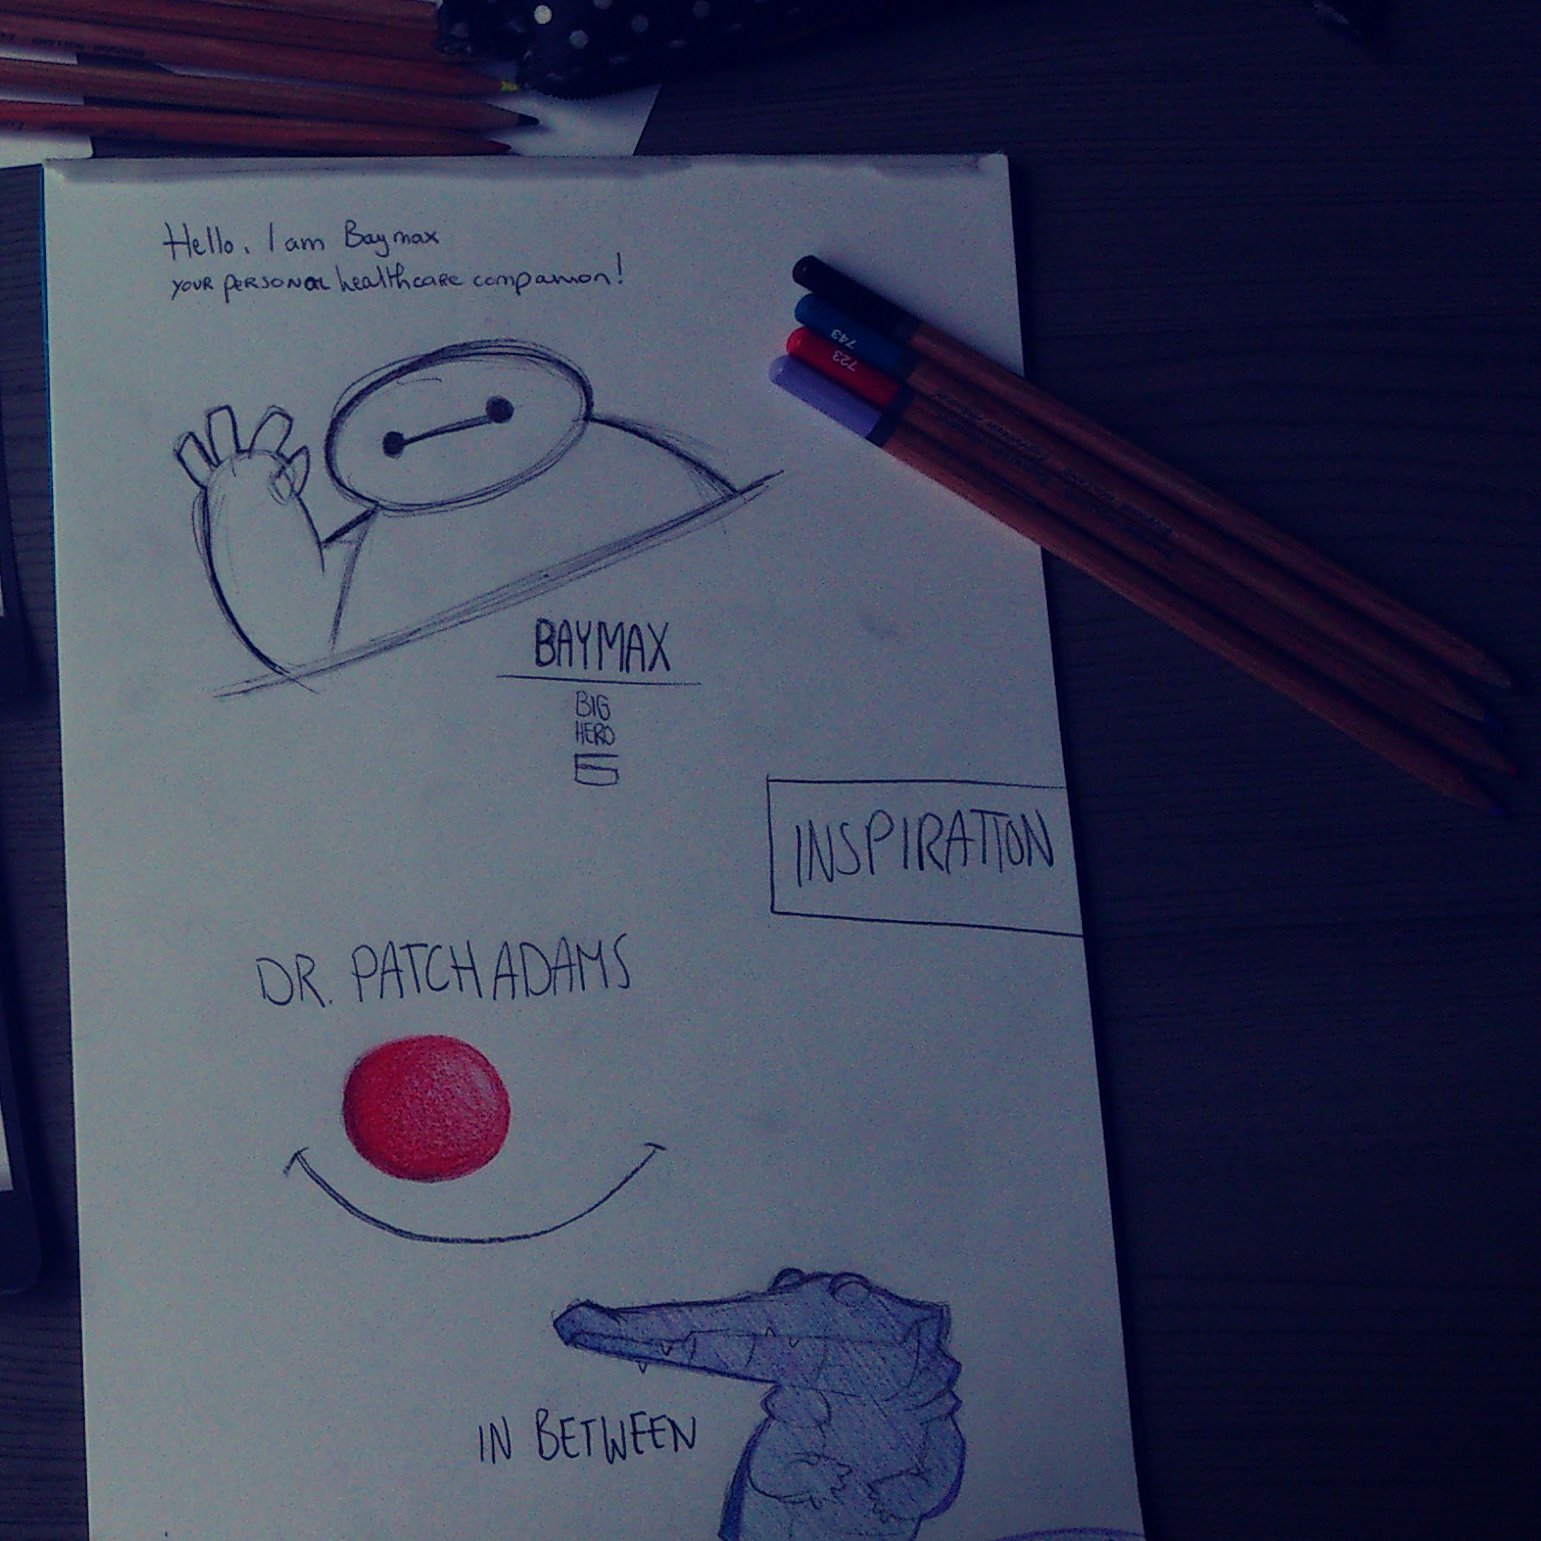 Hello. I am Baymax
your personal healthcare companion!
743
723
BAYMAX
BIG
HERO
6
INSPIRATION
DR. PATCH ADAMS
IN BETWEEN